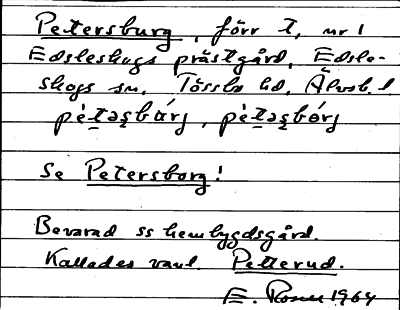 Petersburg, förr t, nr 1
Edsleskogs prästgård, Edsle-
skogs sn, Tössbo hd, Älvsb. l
Se Petersborg!
Bevarad ss hembygdsgård.
Kallades vanl. Petterud.
E. Rosell 1964